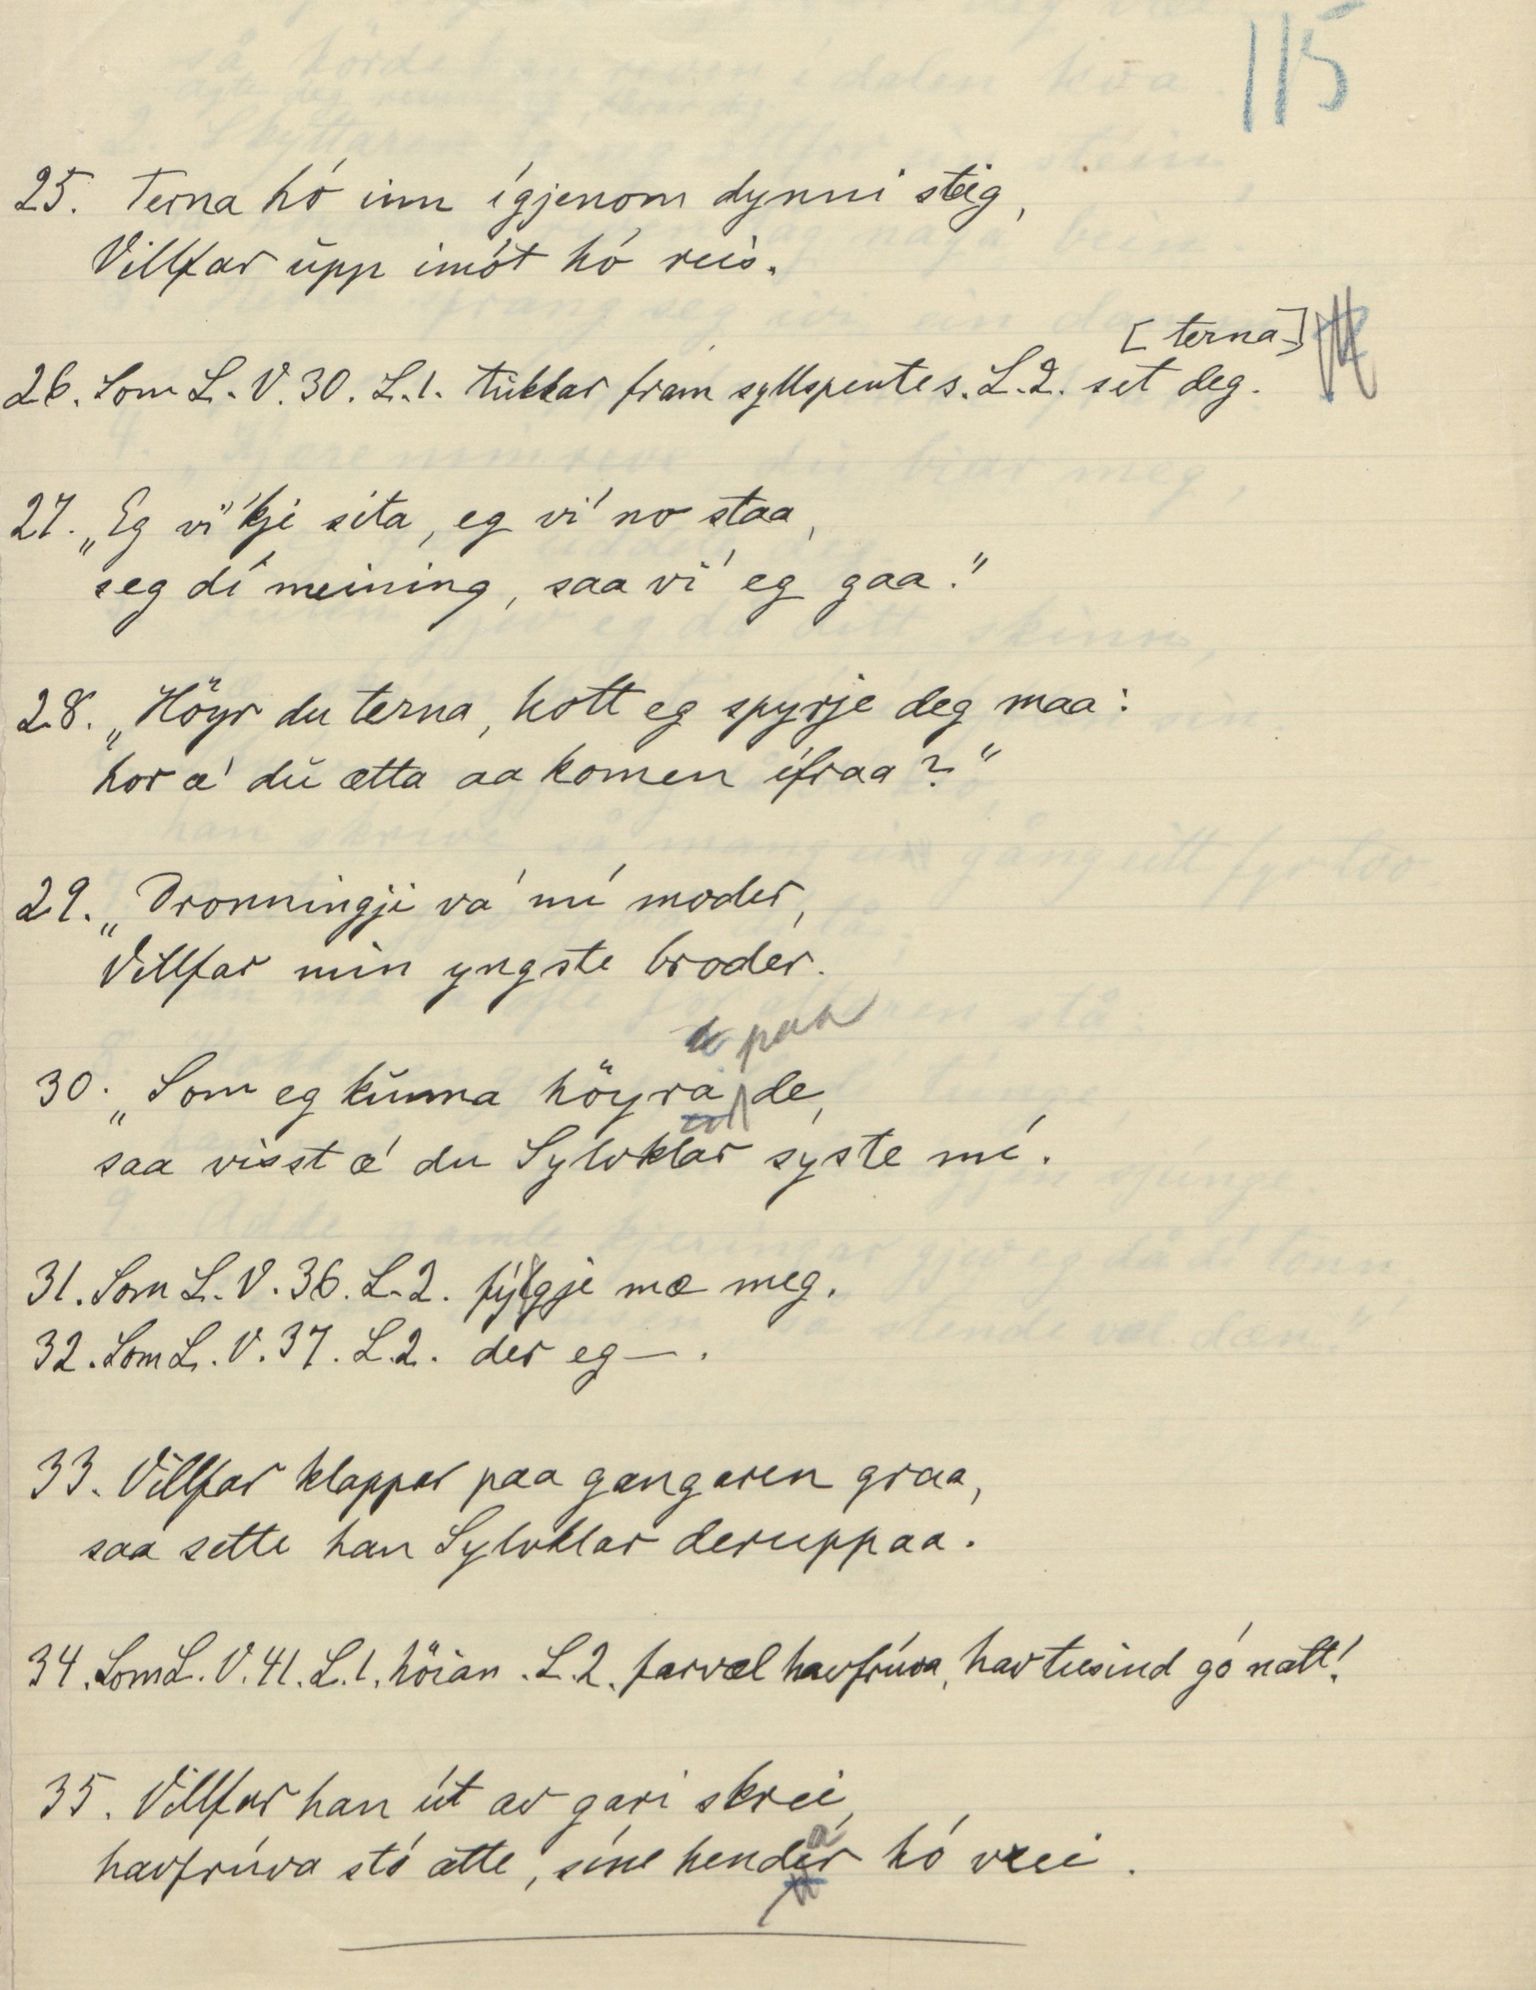 115
25. Terna hó inn ígjenom dynni steig,
Villfar upp imót hó reis.
[terna]
26. Som L. V. 30. L.1. tukkar fram syllspente s. L.2. set deg.
27. „Eg vi'kje sita, eg vi' no staa,
seg di meining, saa vi' eg gaa."
28. „Höyr du terna, hott eg spyrje deg maa:
hor æ' du ætta aa komen ifraa?"
29. „Dronningji va' mi moder,
Villfar min yngste broder.
paa
30. „Som eg kunna höyra de,
saa visst æ' du Sylvklar syste mí.
31. Som L. V. 36. L.2. fylgje mæ meg.
32. Som L. V. 37. L.2. der eg —.
33. Villfar klappar paa gangaren graa,
saa sette han Sylvklar deruppaa.
34. Som L. V. 41. L.1. höian. L.2. farvæl havfrúva, hav tusind gó natt!
35. Villfar han út av gari skrei,
havfrúva stó atte, síne hender hó vrei.